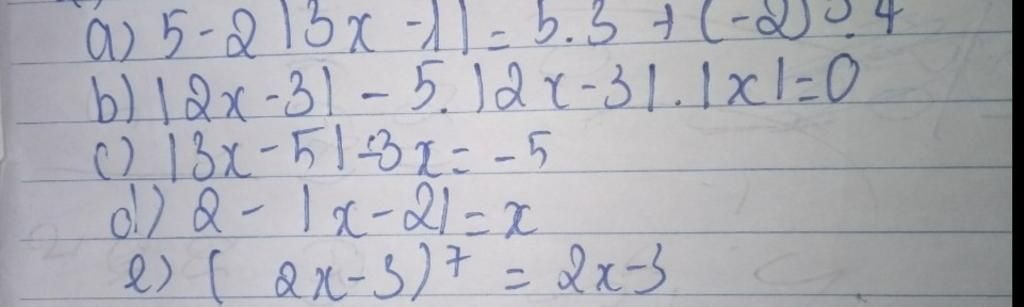 a) 5 - 2 |3x - 1| = 5.3 + (-2)³ : 4
b) |2x - 3| - 5. |2x - 3| . |x| = 0
c) |3x - 5| - 3x = - 5
d) 2 - |x - 2| = x
e) ( 2x - 3)⁷ = 2x - 3